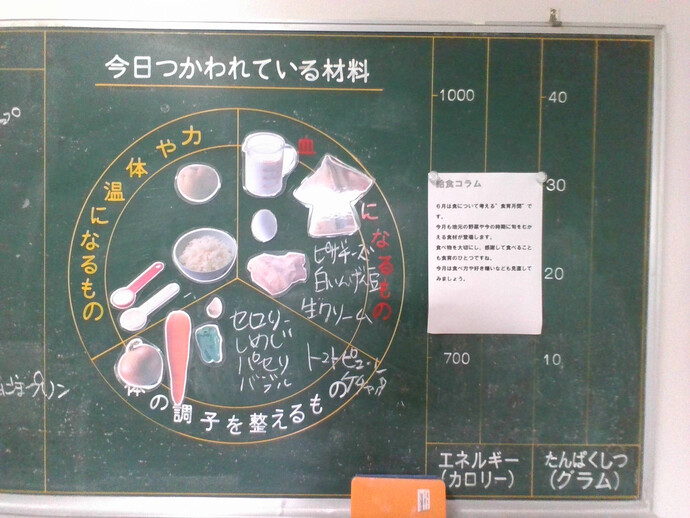 今日つかわれている材料
体や力
温になるもの
血になるもの
ピザチーズ
白いんげん豆
生クリーム
セロリー
しめじ
パセリ
バジル
トマトピューレ
ケチャップ
体の調子を整えるもの
プリン
1000
40
30
20
700
10
エネルギー
(カロリー)
たんぱくしつ
(グラム)
給食コラム
6月は食について考える"食育月間"で
す。
今月も地元の野菜や今の時期に旬をむ
かえる食材が登場します。
食べ物を大切にし、感謝して食べること
も食育のひとつですね。
今月は食べ方や好き嫌いなども見直して
みましょう。